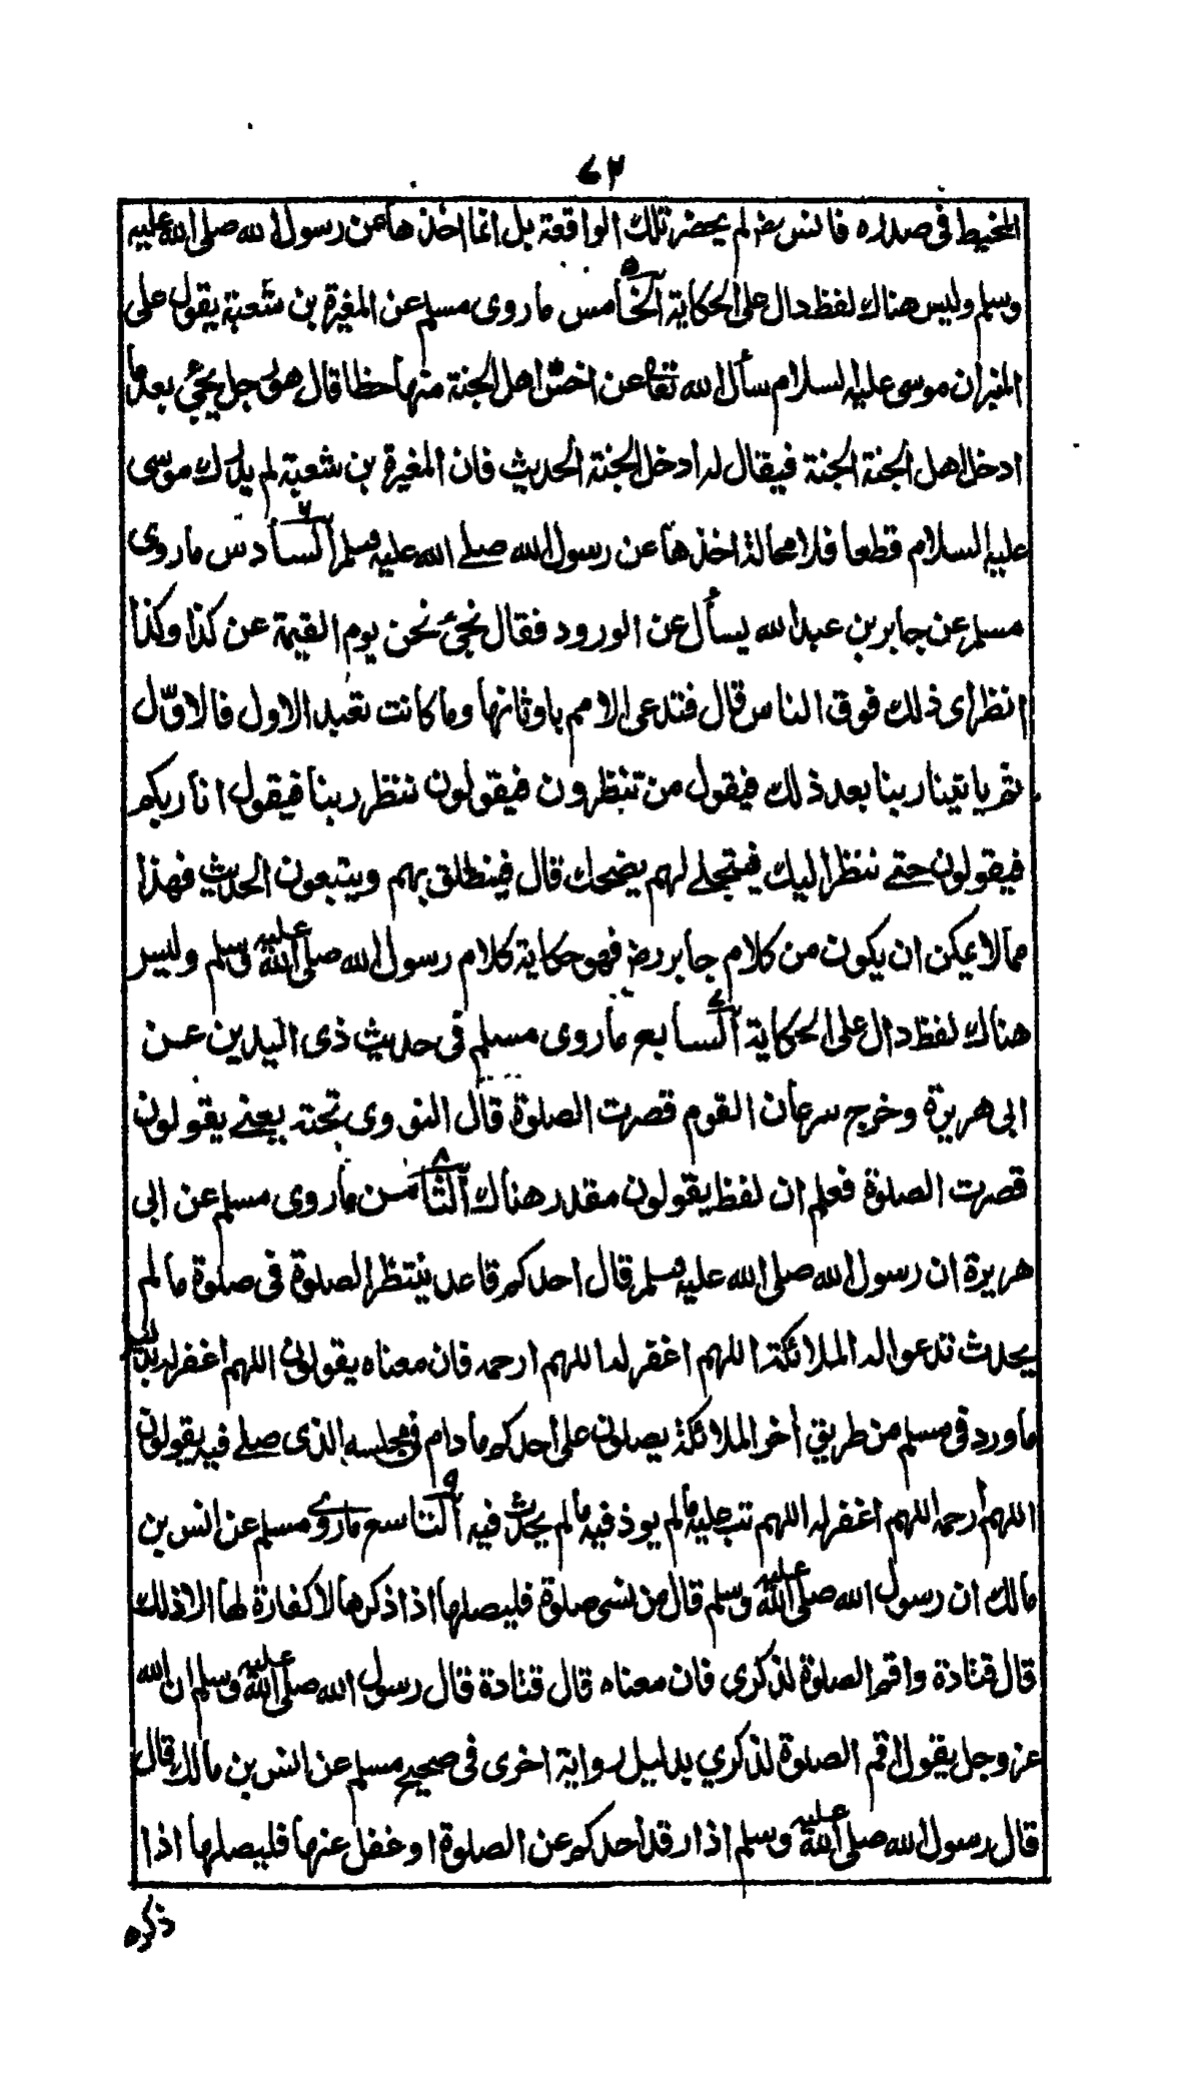 ٧٢
المخيط فى صدره فانس رض لم يحضر تلك الواقعة بل انما اخذها عن رسول الله صلى الله عليه
وسلم وليس هناك لفظ دال على الحكاية الخامس ٥ ما روى مسلم عن المغيرة بن شعبة يقول على
المنبر ان موسى عليه السلام سأل الله تعا عن اخس اهل الجنة منها حظا قال هو رجل يجئ بعد ما
ادخل اهل الجنة الجنة فيقال له ادخل الجنة الحديث فان المغيرة بن شعبة لم يدرك موسى
عليه السلام قطعا فلا محالة اخذها عن رسول الله صلے الله عليه وسلم السادس ٦ ما روى
مسلم عن جابر بن عبد الله يسأل عن الورود فقال نجئ نحن يوم القيمة عن كذا وكذا
انظر اى ذلك فوق الناس قال فتدعى الامم باوثانها وما كانت تعبد الاول فالاوّل
ثم ياتينا ربنا بعد ذلك فيقول من تنظرون فيقولون ننظر ربنا فيقول انا ربكم
فيقولون حتے ننظر اليك فيتجلے لهم يضحك قال فينطلق بهم ويتبعون الحديث فهذا
مما لا يمكن ان يكون من كلام جابر رض فهو حكاية كلام رسول الله صلى الله عليه وسلم وليس
هناك لفظ دال على الحكاية السابع ٧ ما روى مسلم فى حديث ذى اليدين عن
ابى هريرة وخرج سرعان القوم قصرت الصلوة قال النووى تحته يعنے يقولون
قصرت الصلوة فعلم ان لفظ يقولون مقدر هناك الثامن ٨ ما روى مسلم عن ابى
هريرة ان رسول الله صلى الله عليه وسلم قال احدكم قاعد ينتظر الصلوة فى صلوة ما لم
يحدث تدعو له الملائكة اللهم اغفر له اللهم ارحمه فان معناه يقولون اللهم اغفر له بدليل
ما ورد فى مسلم من طريق أخر الملائكة يصلون على احدكم ما دام فى مجلسه الذى صلے فيه يقولون
اللهم ارحمه اللهم اغفر له اللهم تب عليه ما لم يوذ فيه ما لم يحدث فيه التاسع ٩ ما روے مسلم عن انس بن
مالك ان رسول الله صلى الله عليه وسلم قال من نسى صلوة فليصلها اذا ذكرها لا كفارة لها الا ذلك
قال قتادة واقم الصلوة لذكرى فان معناه قال قتادة قال رسول الله صلى الله عليه وسلم ان الله
عز وجل يقول اقم الصلوة لذكري بدليل رواية اخرى فى صحيح مسلم عن انس بن مالك قال
قال رسول الله صلى الله عليه وسلم اذا رقد احدكم عن الصلوة او غفل عنها فليصلها اذا
ذكره